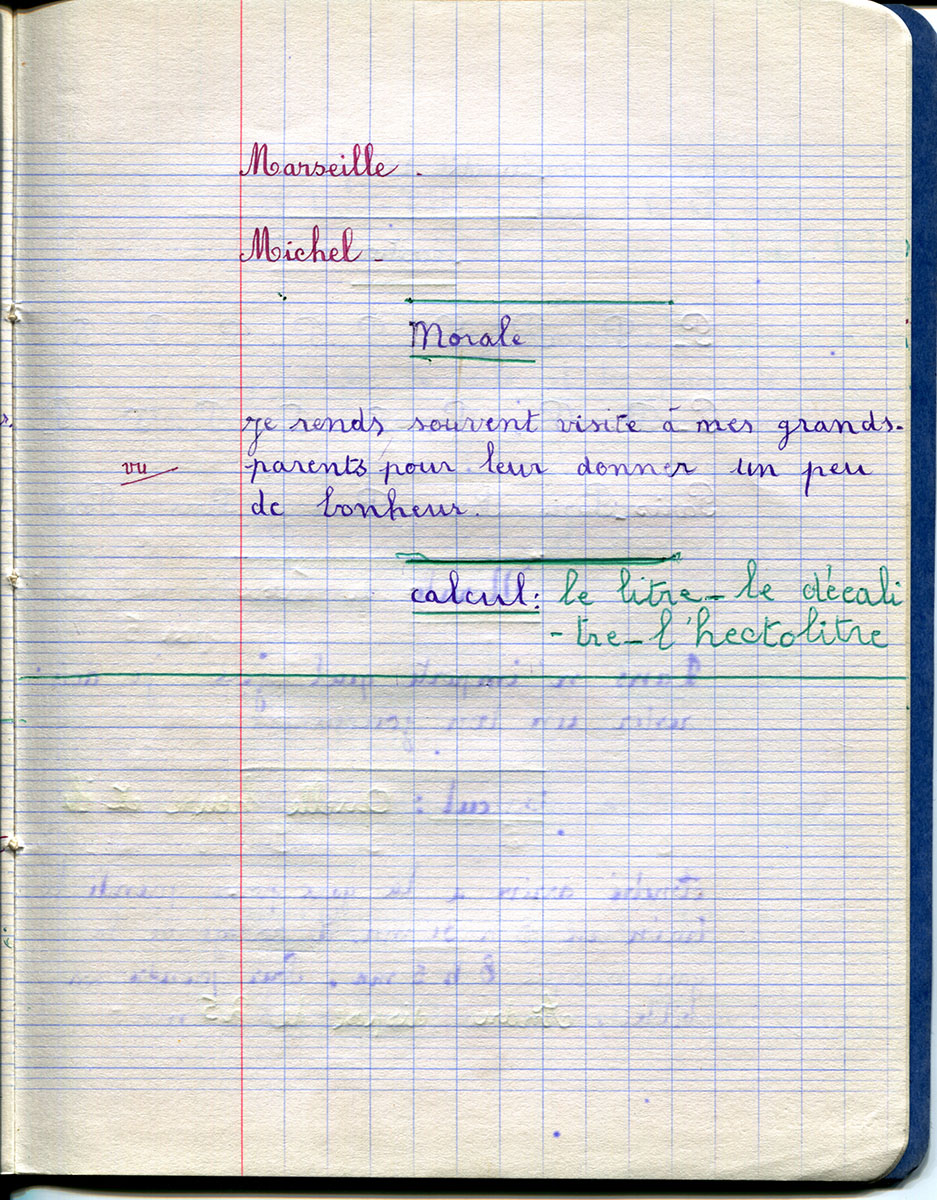 Marseille.
Michel -
Morale
Je rends souvent visite à mes grands-
vu
parents pour leur donner un peu
de bonheur.
calcul: le litre - le décali
- tre - l'hectolitre